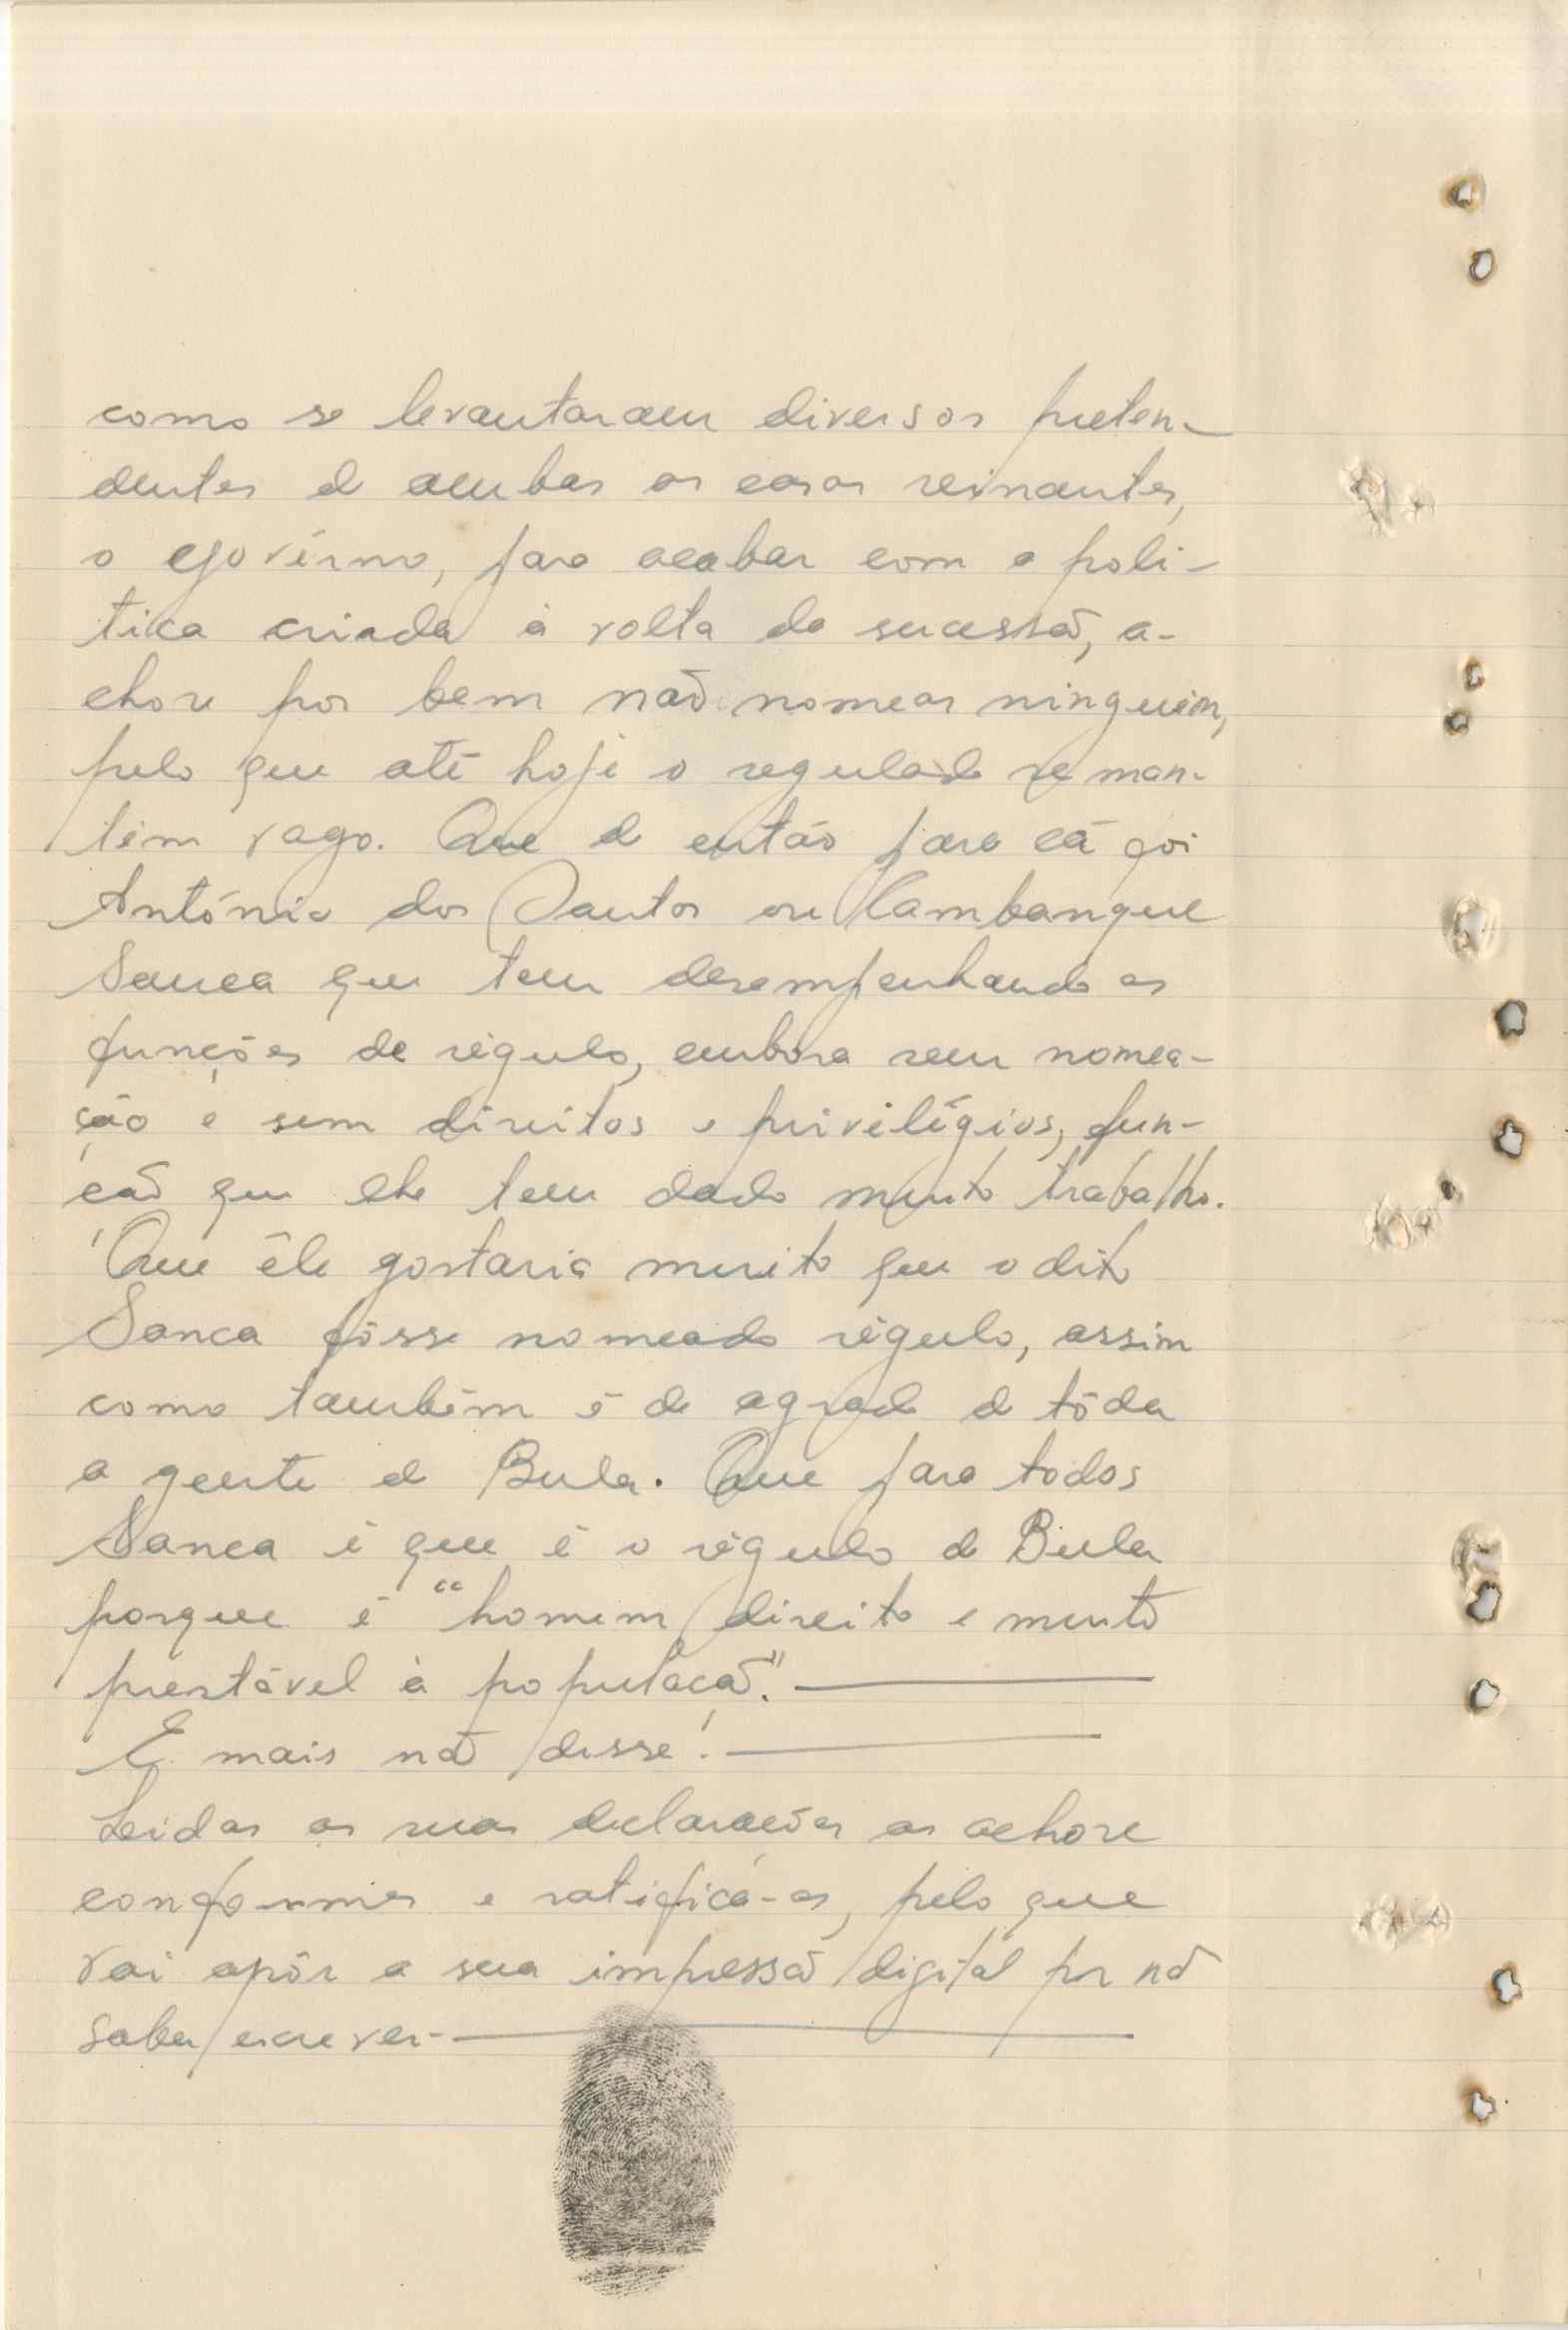 como se levantaram diversos preten-
dentes de ambas as casas reinantes,
o Govêrno, para acabar com a polí-
tica criada à volta da sucessão, a-
chou por bem não nomear ninguém,
pelo que até hoje o regulado se man-
tém vago. Que de então para cá foi
António dos Santos ou Cambangue
Sanca que tem desempenhando as
funções de régulo, embora sem nomea-
ção e sem direitos e privilégios, fun-
ção que lhe tem dado muito trabalho.
Que êle gostaria muito que o dito
Sanca fôsse nomeado régulo, assim
como também é de agrado de tôda
a gente de Bula. Que para todos
Sanca é que é o régulo de Bula
porque é "homem direito e muito
prestável à população".
E mais não disse.
Lidas as suas declarações as achou
conformes e ratificá-as, pelo que
vai apôr a sua impressão digital por não
saber escrever-